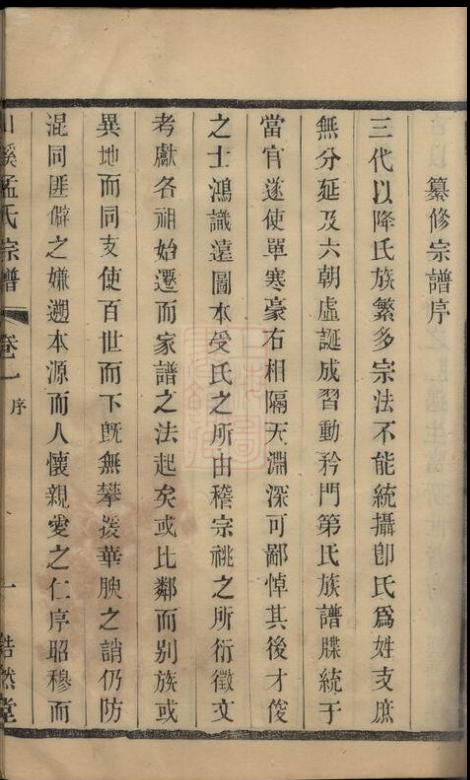 纂修宗譜序
三代以降氏族繁多宗法不能統攝卽氏爲姓支庶
無分延及六朝虛誕成習動矜門第氏族譜牒統于
當官遂使單寒豪右相隔天淵深可鄙悼其後才俊
之士鴻識遠圖本受氏之所由稽宗祧之所衍徵文
考獻各祖始遷而家譜之法起矣或比鄰而別族或
異地而同支使百世而下旣無攀援華腴之誚仍防
混同匪僻之嫌遡本源而人懷親愛之仁序昭穆而
溪孟氏宗譜 卷一 序 一 浩然堂